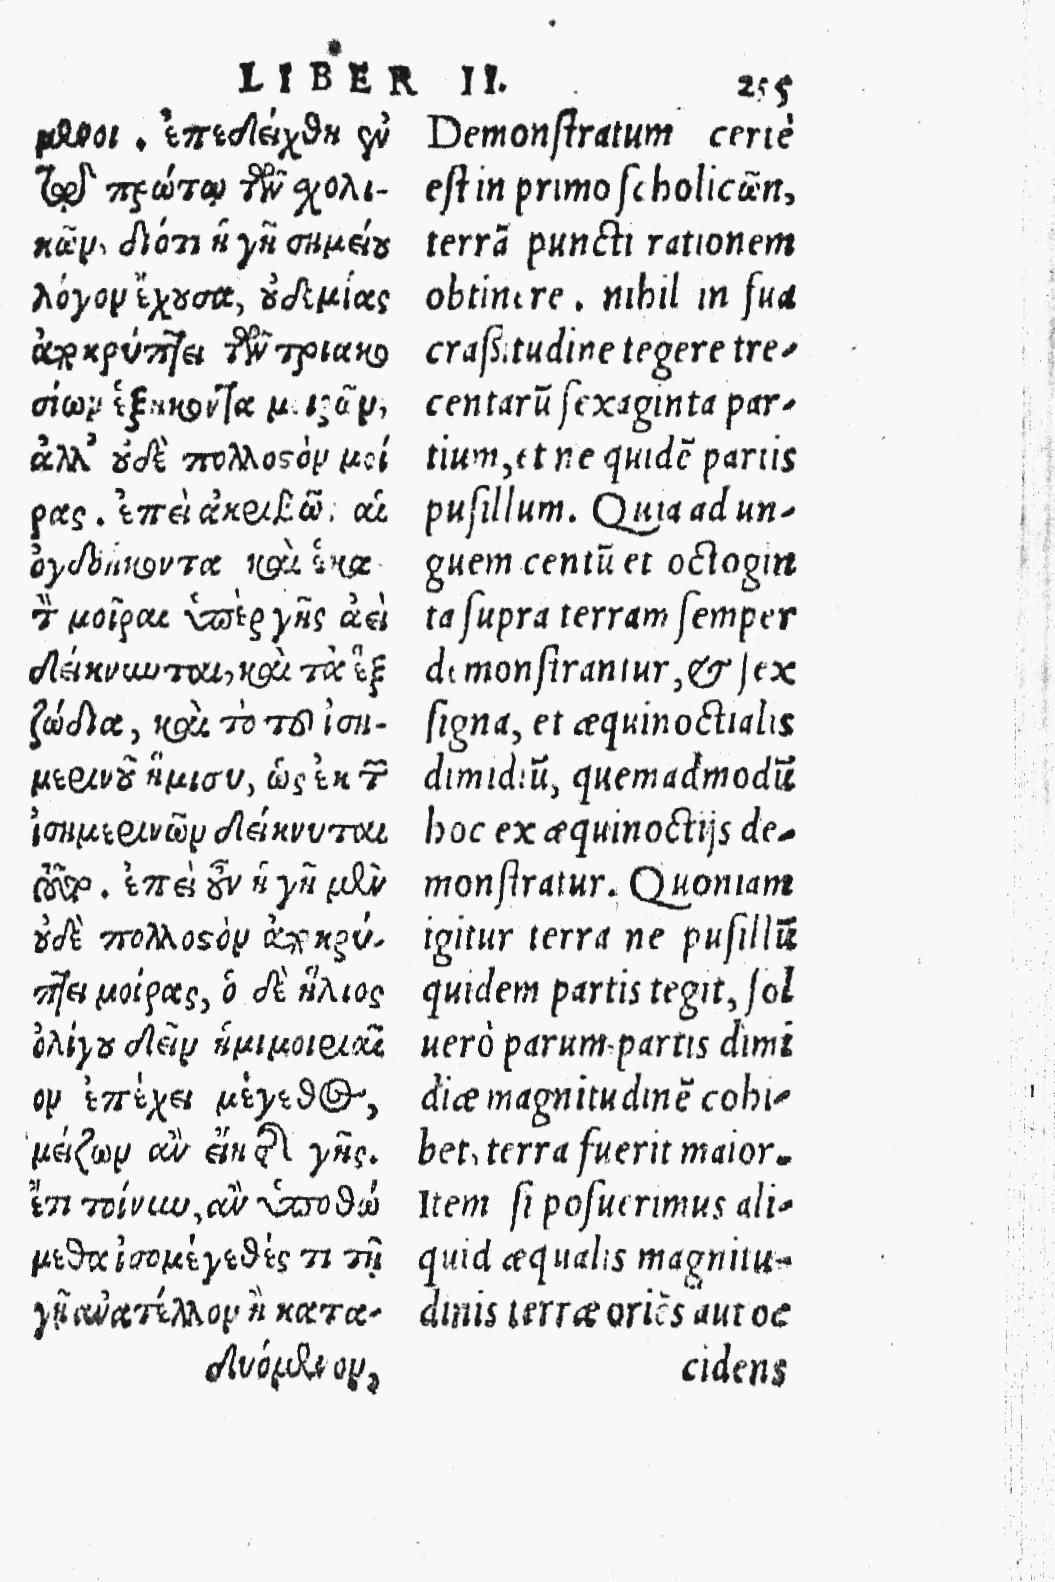 LIBER II. 255
μενοι. ἐπεδείχθη γοῦν
τῷ πρώτῳ τῶν χολι-
κῶν, διότι ἡ γῆ σημείου
λόγον ἔχουσα, οὐδεμίας
ἀποκρύπτει τῶν τριακο
σίων ἑξήκοντα μοιρῶν,
ἀλλ' οὐδὲ πολλοστὸν μοί
ρας. ἐπεὶ ἀκριβῶς αἱ
ὀγδοήκοντα καὶ ἑκα
τὸν μοῖραι ὑπὲρ γῆς ἀεὶ
δείκνυνται, καὶ τὰ ἓξ
ζώδια, καὶ τὸ τοῦ ἰση-
μερινοῦ ἥμισυ, ὡς ἐκ τῶν
ἰσημερινῶν δείκνυται
ὡρῶν. ἐπεὶ οὖν ἡ γῆ μὲν
οὐδὲ πολλοστὸν ἀποκρύ-
πτει μοίρας, ὁ δὲ ἥλιος
ὀλίγου δεῖν ἡμιμοιριαῖ
ον ἐπέχει μέγεθος,
μείζων ἂν εἴη τῆς γῆς.
ἔτι τοίνυν, ἂν ὑποθώ
μεθα ἰσομέγεθές τι τῇ
γῇ ἀνατέλλον ἢ κατα-
δυόμενον,
Demonſtratum certè
eſt in primo ſcholicῶn,
terrā puncti rationem
obtinere. nihil in ſua
craſsitudine tegere tre-
centarū ſexaginta par-
tium, et ne quidē partis
puſillum. Quia ad un-
guem centū et octogin
ta ſupra terram ſemper
demonſtrantur, & ſex
ſigna, et æquinoctialis
dimidiū, quemadmodū
hoc ex æquinoctijs de-
monſtratur. Quoniam
igitur terra ne puſillū
quidem partis tegit, ſol
uerò parum partis dimi
diæ magnitudinē cohi-
bet, terra fuerit maior.
Item ſi poſuerimus ali-
quid æqualis magnitu-
dinis terræ oriēs aut oc
cidens